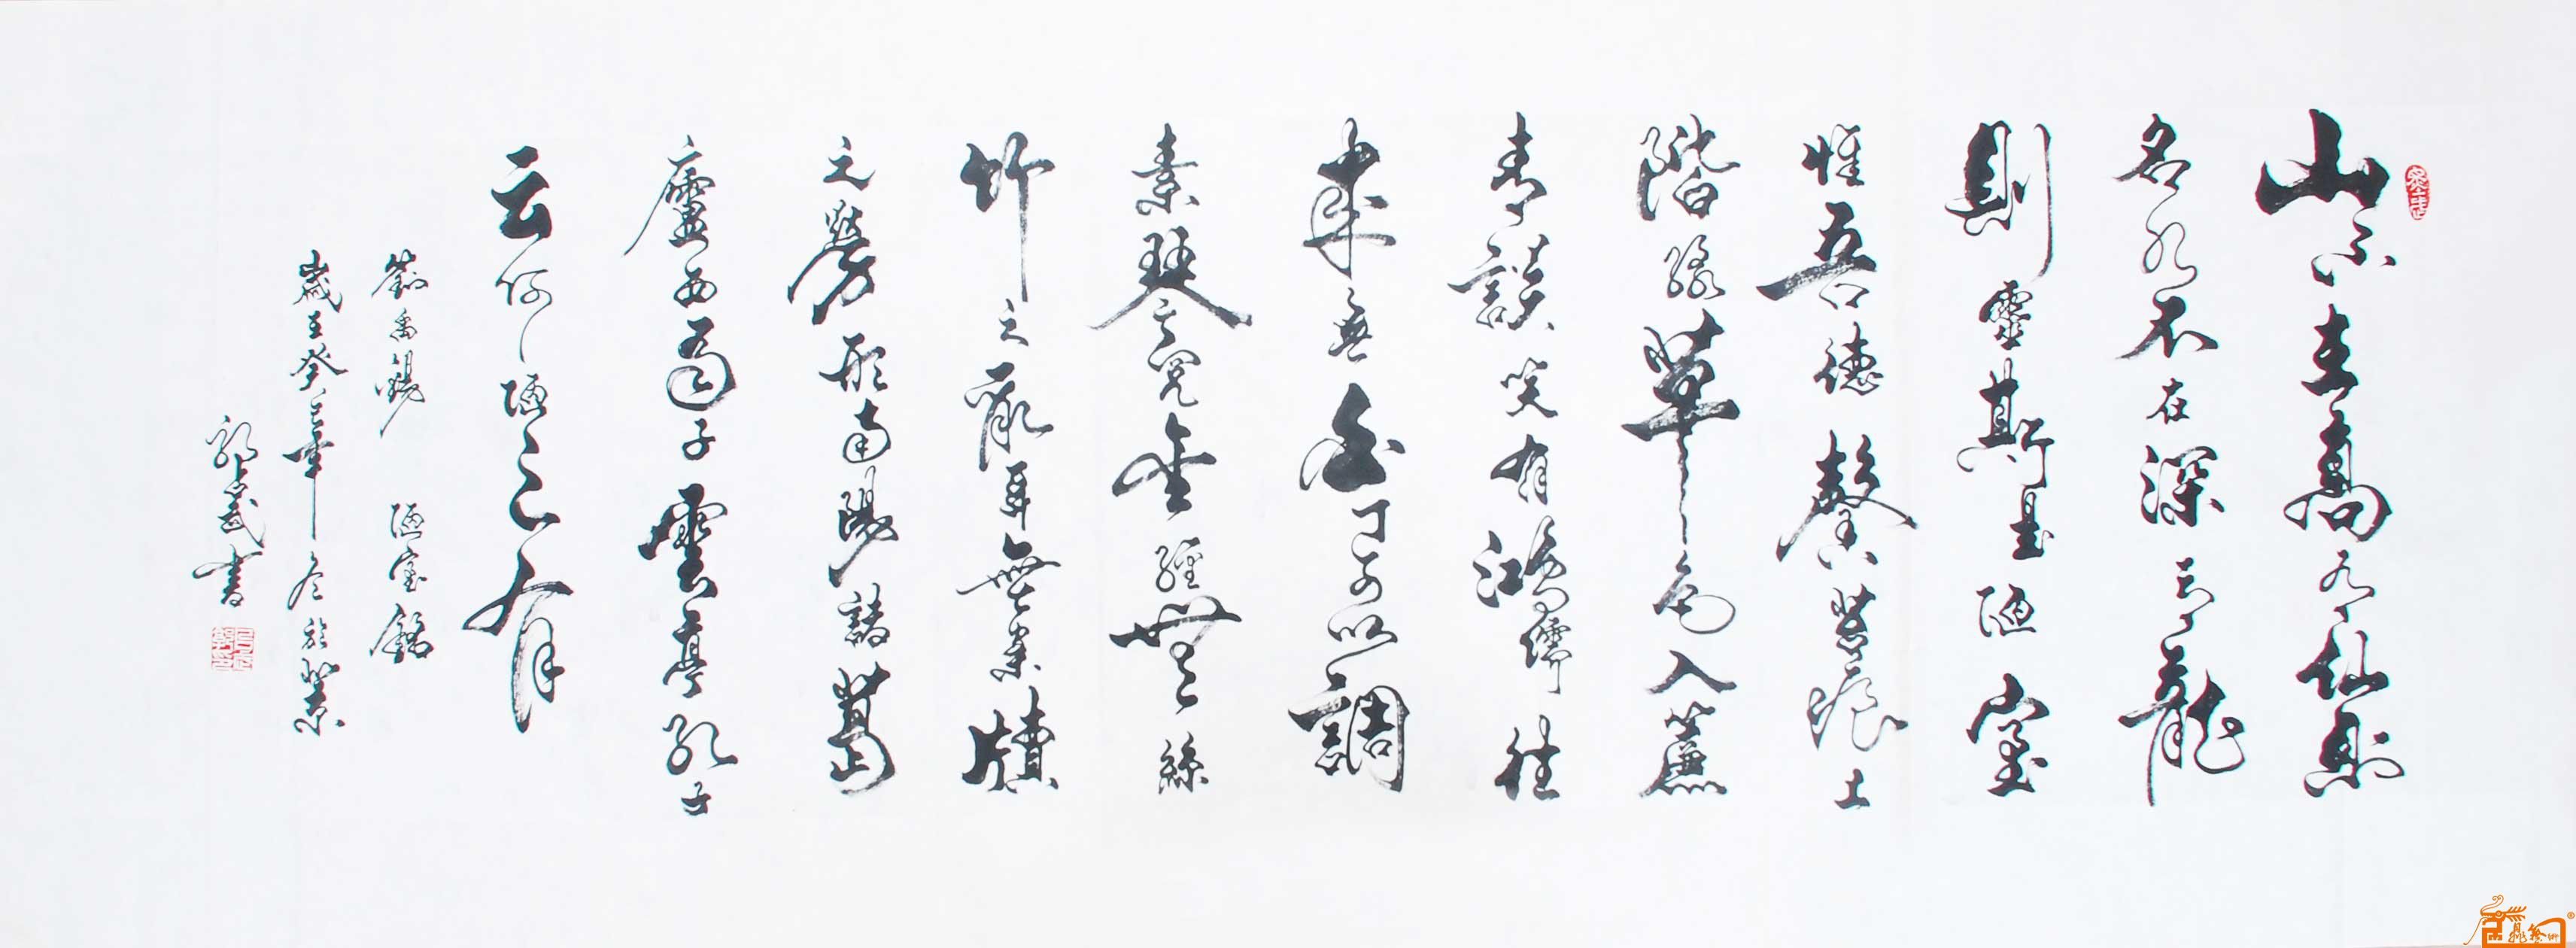 山不在高有仙則
名水不在深有龍
則靈斯是陋室
惟吾德馨苔痕上
階綠草色入簾
青談笑有鴻儒往
來無白丁可以調
素琴閱金經無絲
竹之亂耳無案牘
之勞形南陽諸葛
廬西蜀子雲亭孔子
云何陋之有
劉禹錫 陋室銘
歲癸巳年冬於
武書